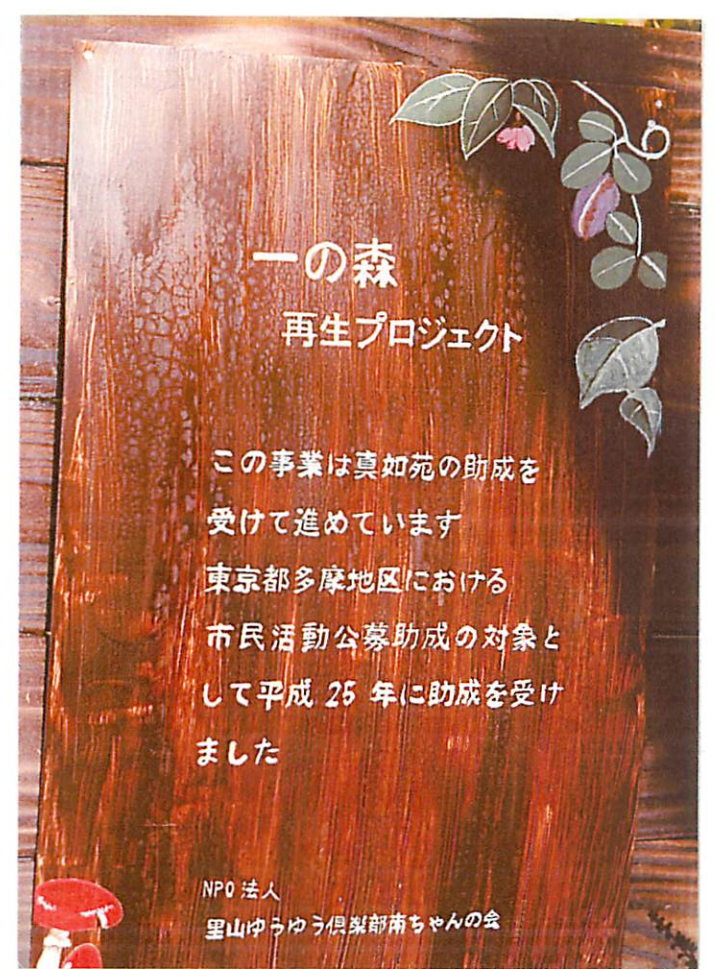 一の森
再生プロジェクト
この事業は真如苑の助成を
受けて進めています
東京都多摩地区における
市民活動公募助成の対象と
して平成 25 年に助成を受け
ました
NPO 法人
里山ゆうゆう倶楽部南ちゃんの会